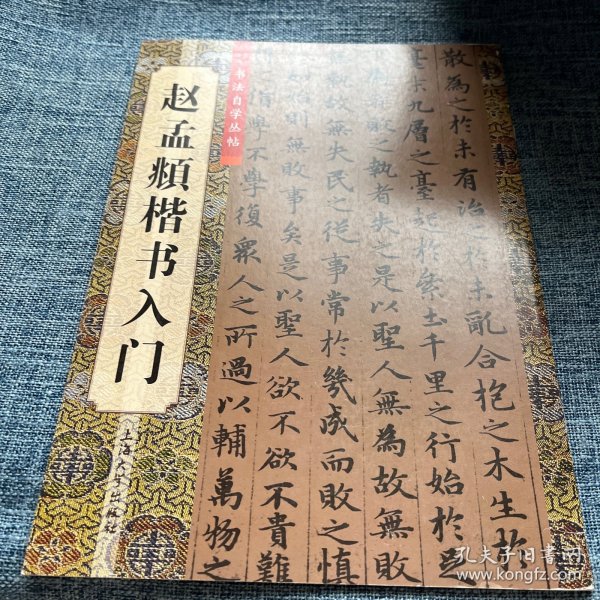 书法自学丛帖
赵孟頫楷书入门
上海大学出版社
散為之於未有治之於未亂合抱之木生於
毫末九層之臺起於絫土千里之行始於足
為者敗之執者失之是以聖人無為故無敗
執故無失民之從事常於幾成而敗之慎
如始則無敗事矣是以聖人欲不欲不貴難
學不學復眾人之所過以輔萬物之
孔夫子旧书网
www.kongfz.com